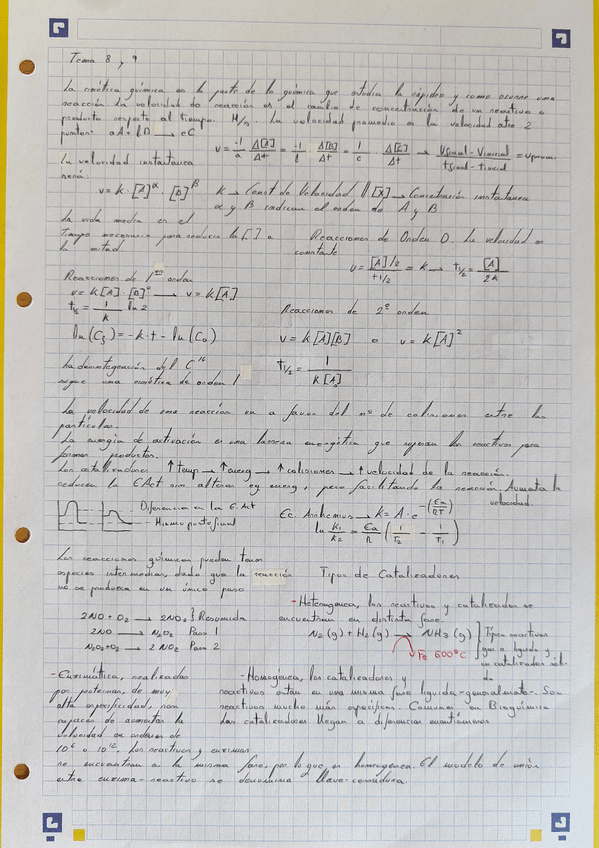 Tema 8 y 9
La cinética química es la parte de la química que estudia la rápidez y como ocurre una
reacción. La velocidad de reacción es el cambio de concentración de un reactivo o
producto respecto al tiempo. M/s. La velocidad promedio es la velocidad entre 2
puntos: aA + bB → cC
v = -1/a Δ[A]/Δt = -1/b · Δ[B]/Δt = 1/c · Δ[C]/Δt → Vfinal - Vinicial / tfinal - tinicial = vprom.
La velocidad instantánea
será:
v = k · [A]^α · [B]^β k → Const de Velocidad || [X] → Concentración instantanea
α y β indican el orden de A y B
La vida media es el
Tiempo necesario para reducir la [ ] a
la mitad
Reacciones de Orden 0. La velocidad es
constante
v = [A]/2 / t1/2 = k → t1/2 = [A]/2k
Reacciones de 1er orden
v = k[A] · [B]^0 → v = k[A]
t½ = 1/k ln 2
ln(Cf) = -k · t - ln(C0)
Reacciones de 2º orden
v = k[A][B] o v = k[A]²
t1/2 = 1 / k[A0]
La desintegración del C14
sigue una cinética de orden 1
La velocidad de una reacción va a favor del nº de colisiones entre las
partículas.
La energía de activación es una barrera energética que superan los reactivos para
formar productos.
Los catalizadores ↑temp → ↑energ → ↑colisiones → ↑velocidad de la reacción.
reducen la EAct sin alterar eq energ, pero facilitando la reacción. Aumenta la
velocidad.
Diferencia en la E.Act
Mismo punto final
Ec. Arrhenius → k = A · e^-(Ea/RT)
ln K1/K2 = Ea/R (1/T2 - 1/T1)
Las reacciones químicas pueden tener
especies intermedias, dado que la reacción
no se produce en un único paso
2NO + O2 → 2NO2 } Resumida
2NO → N2O2 Paso 1
N2O2+O2 → 2 NO2 Paso 2
Tipos de Catalizadores
- Heterogénea, los reactivos y catalizador se
encuentran en distinta fase.
N2(g) + H2(g) → NH3(g)
Fe 500°C
Tipos reactivos
gas o líquido y
un catalizador sóli-
do
- Enzimática, realizadas
por proteínas, de muy
alta especificidad, son
capaces de aumentar la
velocidad en ordenes de
10^6 o 10^12. Los reactivos y enzimas
se encuentran en la misma fase, por lo que, es homogenea. El modelo de unión
entre enzima-reactivo se denomina llave-cerradura.
- Homogénea, los catalizadores y
reactivos están en una misma fase líquida -generalmente-. Son
reactivos mucho más específicos. Comunes en Bioquímica
Los catalizadores llegan a diferenciar enantiómeros